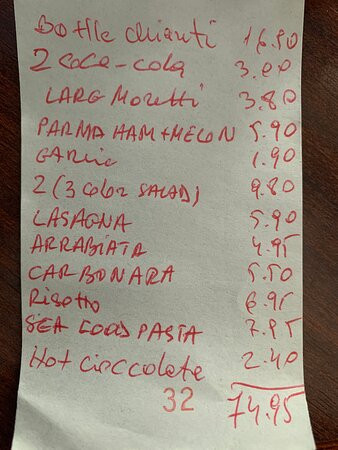 Bottle chianti 16.90
2 coca-cola 3.00
LARG Moretti 3.80
PARMA HAM+MELON 5.90
GARLIC 1.90
2 (3 color SALAD) 9.80
LASAGNA 5.90
ARRABIATA 4.95
CARBONARA 5.50
Risotto 6.95
SEA FOOD PASTA 7.95
Hot cioccolate 2.40
32 74.95